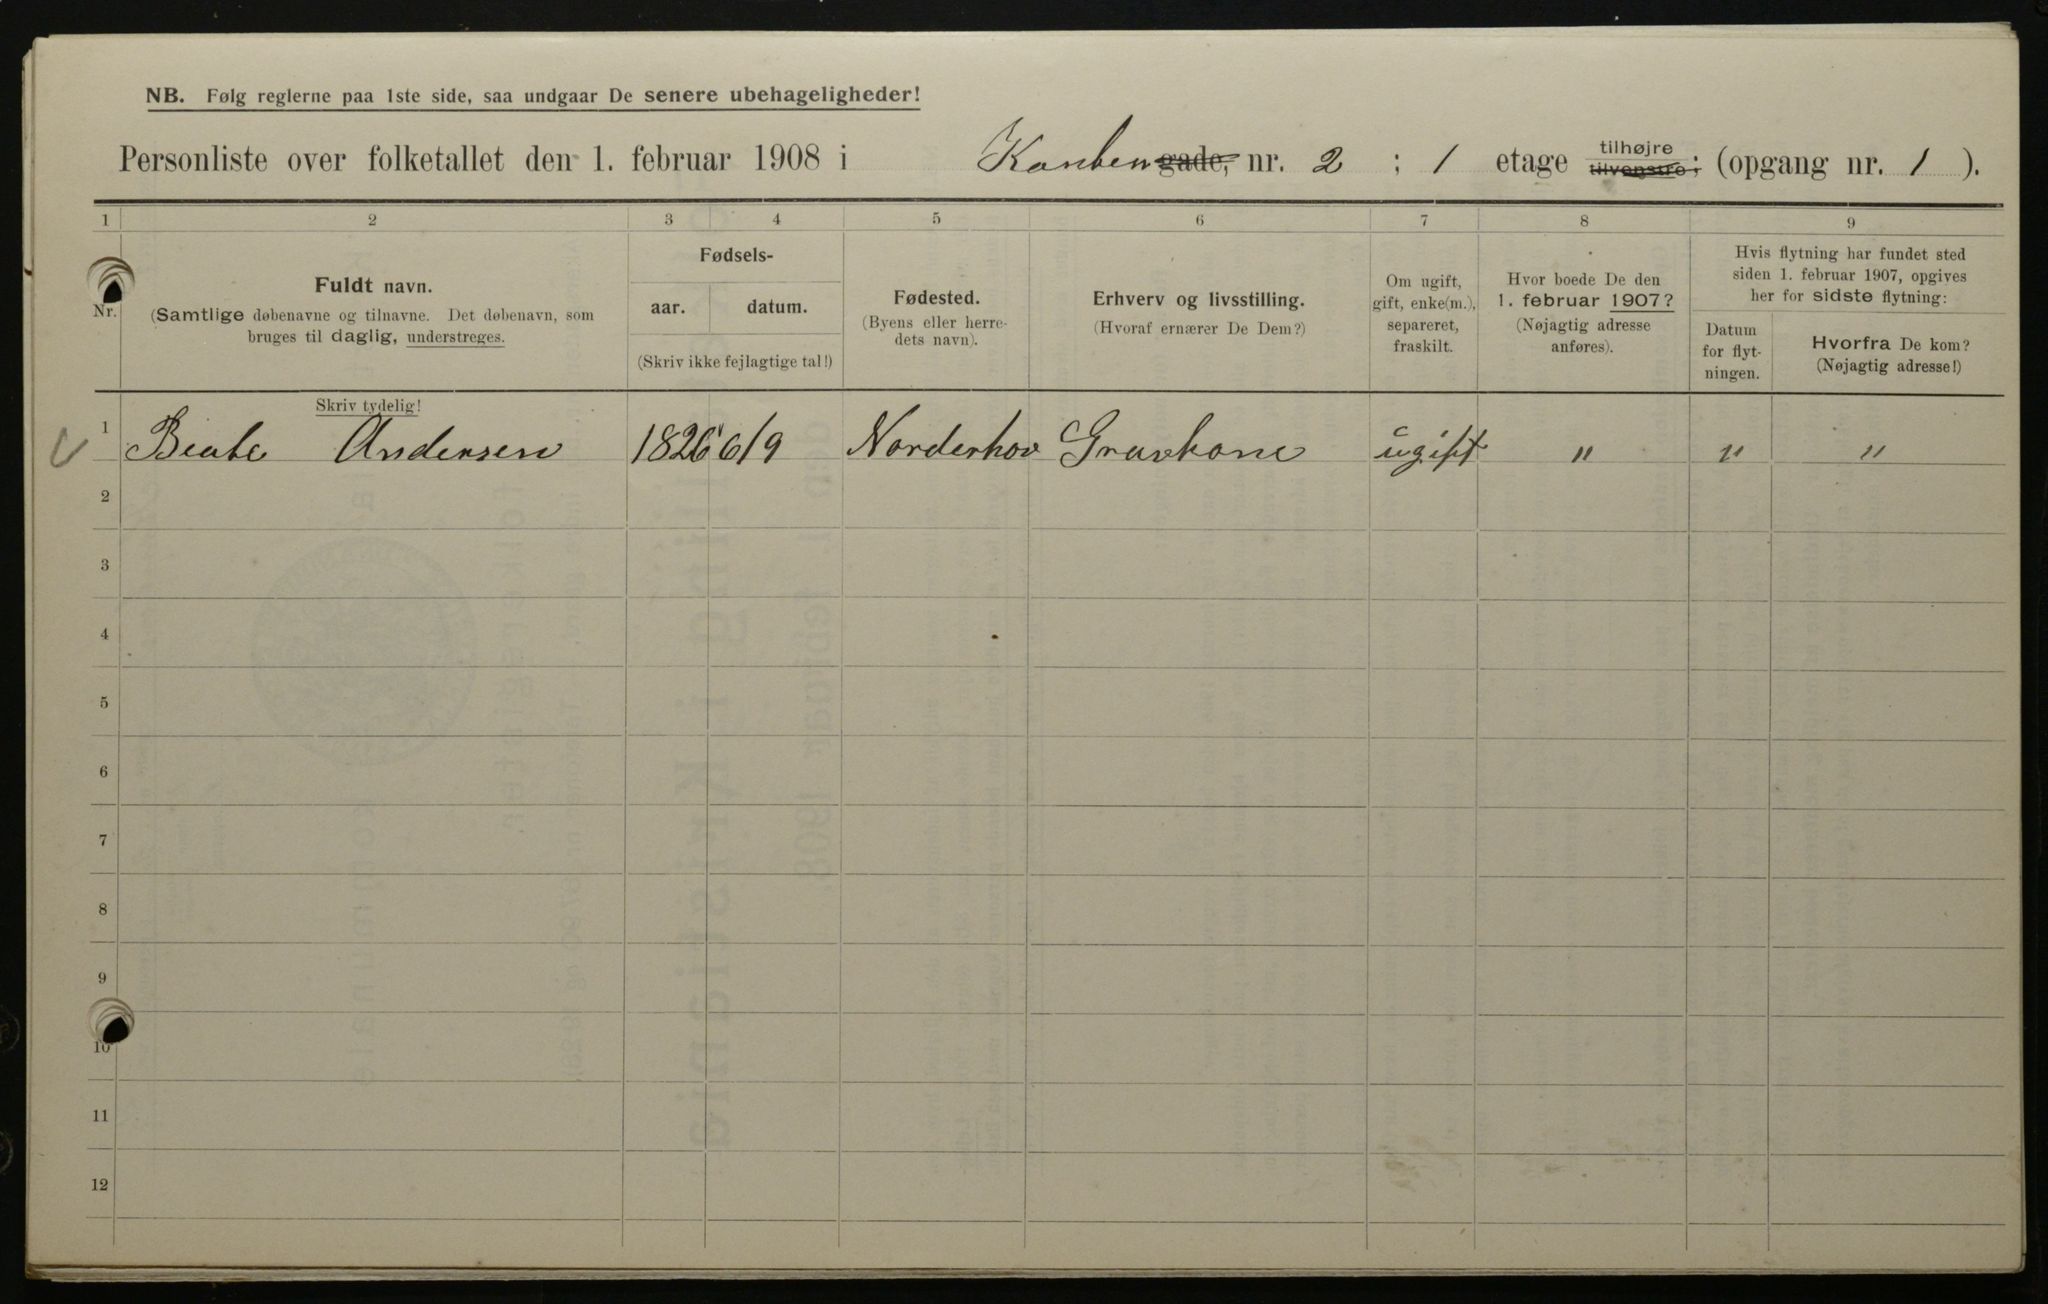 NB. Følg reglerne paa 1ste side, saa undgaar De senere ubehageligheder!
Personliste over folketallet den 1. februar 1908 i Kanten gade, nr. 2 ; 1 etage tilhøjre tilvenstre; (opgang nr. 1 ).
1 2 3 4 5 6 7 8 9
Nr.
Fuldt navn.
(Samtlige døbenavne og tilnavne. Det døbenavn, som
bruges til daglig, understreges.
Skriv tydelig!
Fødsels-
aar. datum.
(Skriv ikke fejlagtige tal!)
Fødested.
(Byens eller herre-
dets navn).
Erhverv og livsstilling.
(Hvoraf ernærer De Dem?)
Om ugift,
gift, enke(m.),
separeret,
fraskilt.
Hvor boede De den
1. februar 1907?
(Nøjagtig adresse
anføres).
Hvis flytning har fundet sted
siden 1. februar 1907, opgives
her for sidste flytning:
Datum
for flyt-
ningen.
Hvorfra De kom?
(Nøjagtig adresse!)
1 Beate Andersen 1826 6/9 Norderhov Gravkone ugift " " "
2
3
4
5
6
7
8
9
10
11
12